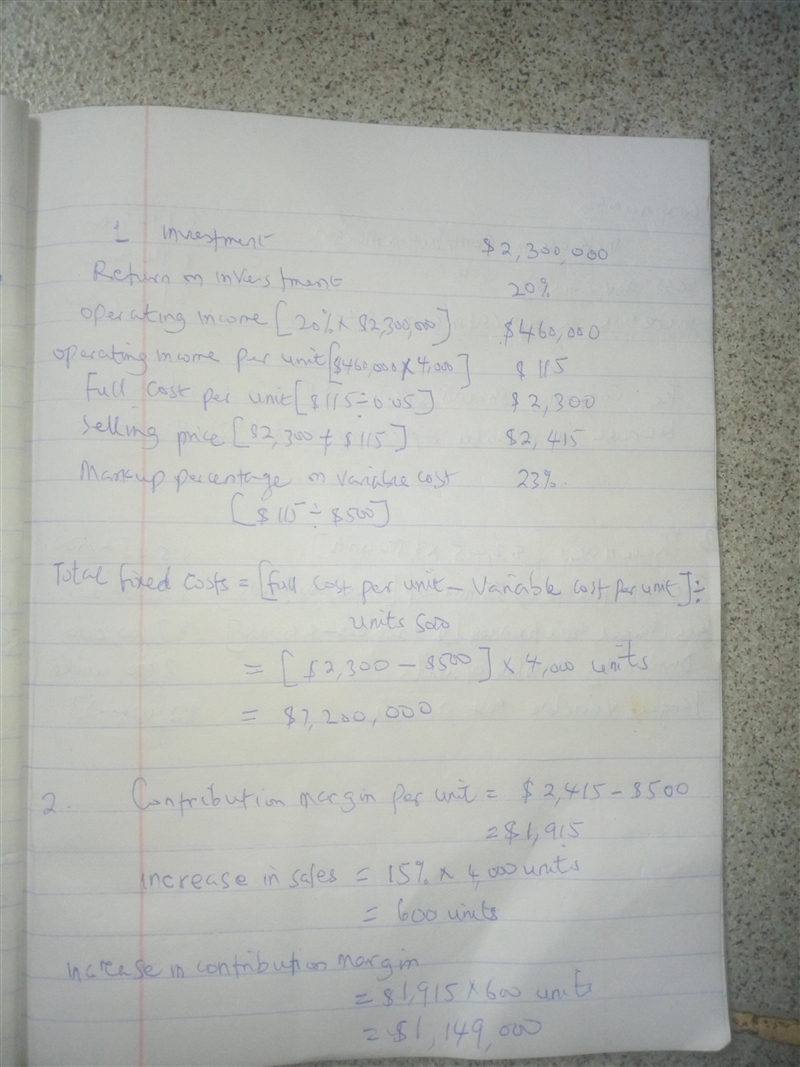 1 Investment $2,300,000
Return on investment 20%
operating income [20% x $2,300,000] $460,000
operating income per unit [$460,000 x 4,000] $115
Full cost per unit [$115 ÷ 0.05] $2,300
Selling price [$2,300 + $115] $2,415
Markup percentage on variable cost 23%
[$115 ÷ $500]
Total fixed costs = [full cost per unit - Variable cost per unit] ÷
units 5000
= [$2,300 - $500] x 4,000 units
= $7,200,000
2. Contribution margin per unit = $2,415 - $500
= $1,915
increase in sales = 15% x 4,000 units
= 600 units
increase in contribution margin
= $1,915 x 600 units
= $1,149,000